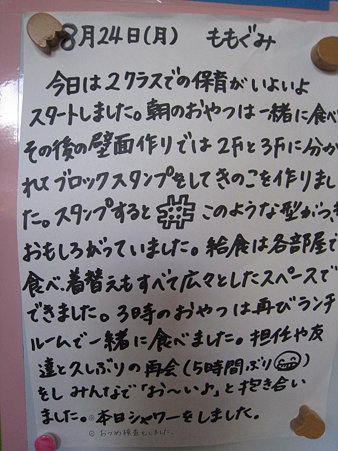 8月24日(月) ももぐみ
今日は2クラスでの保育がいよいよ
スタートしました。朝のおやつは一緒に食べ
その後の壁面作りでは2Fと3Fに分か
れてブロックスタンプをしてきのこを作りまし
た。スタンプすると このような型がつき
おもしろがっていました。給食は各部屋で
食べ、着替えもすべて広々としたスペースで
できました。3時のおやつは再びランチ
ルームで一緒に食べました。担任や友
達と久しぶりの再会(5時間ぶり)
をし みんなで「お〜い♪」と抱き合い
ました。◎本日シャワーをしました。
◎おつめ検査もしました。